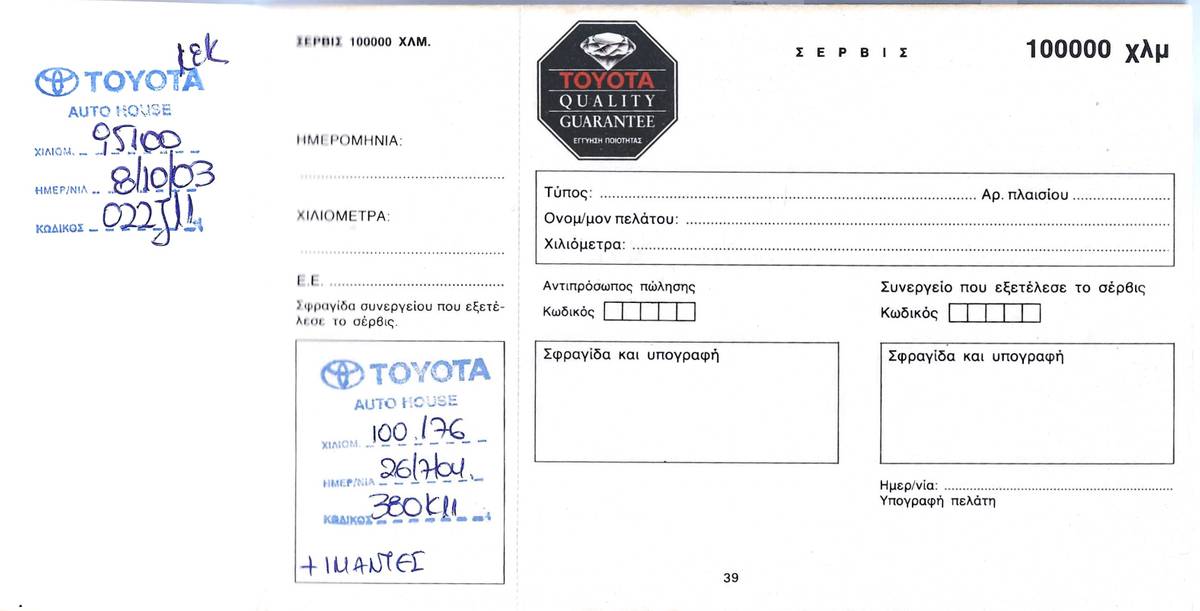 ΚΕΚ
TOYOTA
AUTO HOUSE
ΧΙΛΙΟΜ. 95100
ΗΜΕΡ/ΝΙΑ 8/10/03
ΚΩΔΙΚΟΣ 022J11
ΣΕΡΒΙΣ 100000 ΧΛΜ.
ΗΜΕΡΟΜΗΝΙΑ:
ΧΙΛΙΟΜΕΤΡΑ:
Ε.Ε.
Σφραγίδα συνεργείου που εξετέ-
λεσε το σέρβις.
TOYOTA
AUTO HOUSE
ΧΙΛΙΟΜ. 100.176
ΗΜΕΡ/ΝΙΑ 26/7/04.
ΚΩΔΙΚΟΣ 380K11
+ ΙΜΑΝΤΕΣ
TOYOTA
QUALITY
GUARANTEE
ΕΓΓΥΗΣΗ ΠΟΙΟΤΗΤΑΣ
ΣΕΡΒΙΣ
100000 χλμ
Τύπος: Αρ. πλαισίου
Ονομ/μον πελάτου:
Χιλιόμετρα:
Αντιπρόσωπος πώλησης
Κωδικός
Συνεργείο που εξετέλεσε το σέρβις
Κωδικός
Σφραγίδα και υπογραφή
Σφραγίδα και υπογραφή
Ημερ/νία:
Υπογραφή πελάτη
39